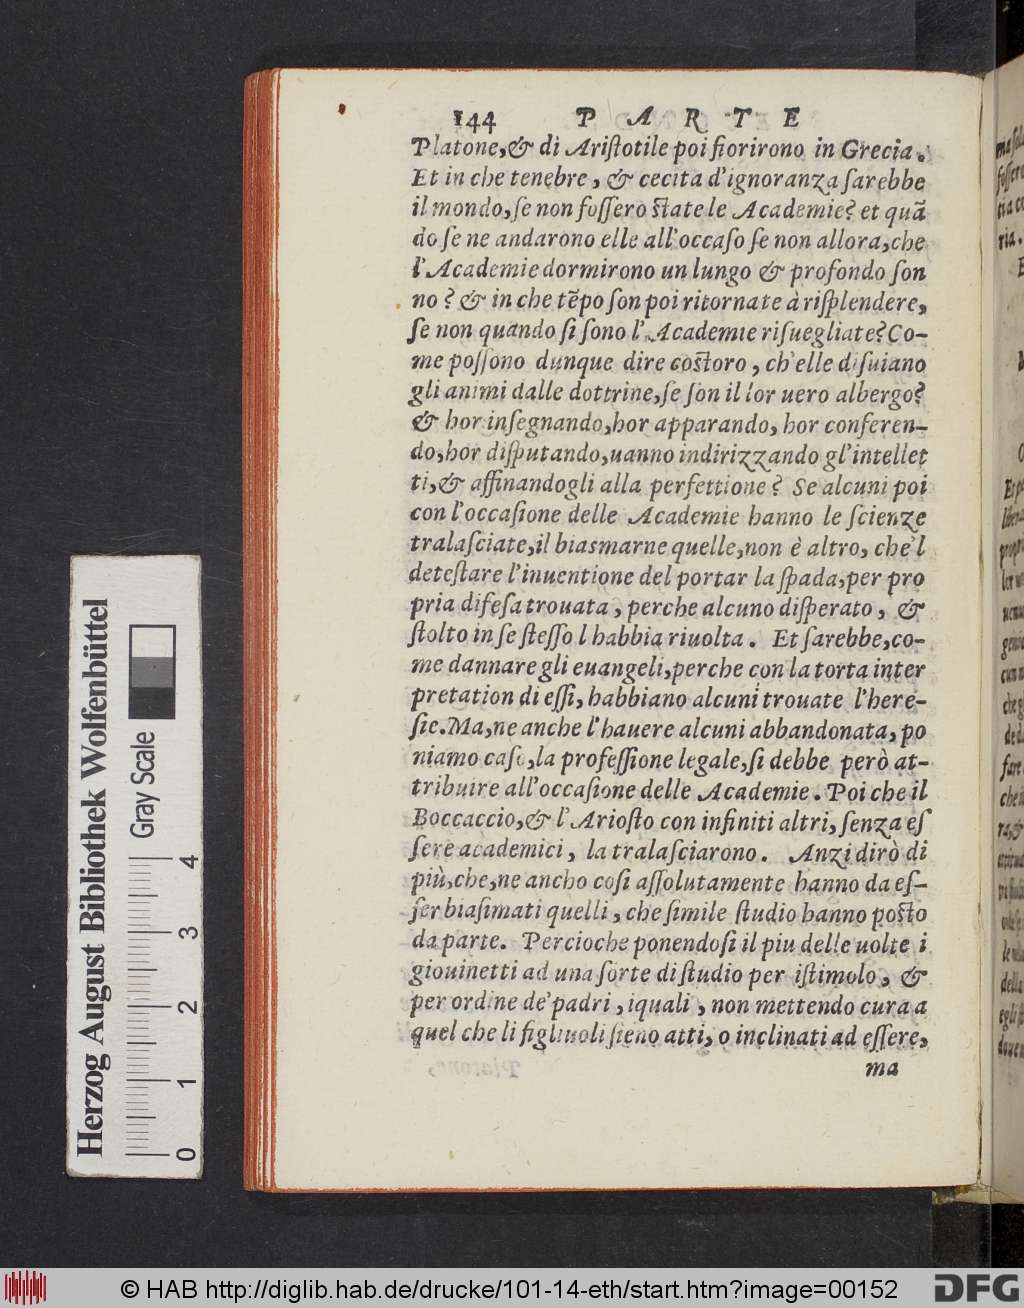 144 PARTE
Platone,& di Ariſtotile poi fiorirono in Grecia.
Et in che tenebre, & cecita d'ignoranza ſarebbe
il mondo, ſe non foſſero ſtate le Academie? et quã
do ſe ne andarono elle all'occaſo ſe non allora, che
l'Academie dormirono un lungo & profondo ſon
no? & in che tẽpo ſon poi ritornate à riſplendere,
ſe non quando ſi ſono l'Academie riſuegliate? Co-
me poſſono dunque dire coſtoro, ch'elle diſuiano
gli animi dalle dottrine, ſe ſon il lor uero albergo?
& hor inſegnando, hor apparando, hor conferen-
do, hor diſputando, uanno indirizzando gl'intellet
ti, & affinandogli alla perfettione? Se alcuni poi
con l'occaſione delle Academie hanno le ſcienze
tralaſciate, il biasmarne quelle, non è altro, che'l
deteſtare l'inuentione del portar la ſpada, per pro
pria difeſa trouata, perche alcuno diſperato, &
ſtolto in ſe ſteſſo l habbia riuolta. Et ſarebbe, co-
me dannare gli euangeli, perche con la torta inter
pretation di eſſi, habbiano alcuni trouate l'here-
ſie. Ma, ne anche l'hauere alcuni abbandonata, po
niamo caſo, la profeſſione legale, ſi debbe però at-
tribuire all'occaſione delle Academie. Poi che il
Boccaccio, & l'Arioſto con infiniti altri, ſenza eſ
ſere academici, la tralaſciarono. Anzi dirò di
più, che, ne ancho coſi aſſolutamente hanno da eſ-
ſer biaſimati quelli, che ſimile ſtudio hanno poſto
da parte. Percioche ponendoſi il piu delle uolte i
giouinetti ad una ſorte di ſtudio per iſtimolo, &
per ordine de'padri, iquali, non mettendo cura a
quel che li figliuoli ſieno atti, o inclinati ad eſſere,
ma
Herzog August Bibliothek Wolfenbüttel
Gray Scale
0 1 2 3 4
© HAB http://diglib.hab.de/drucke/101-14-eth/start.htm?image=00152
DFG